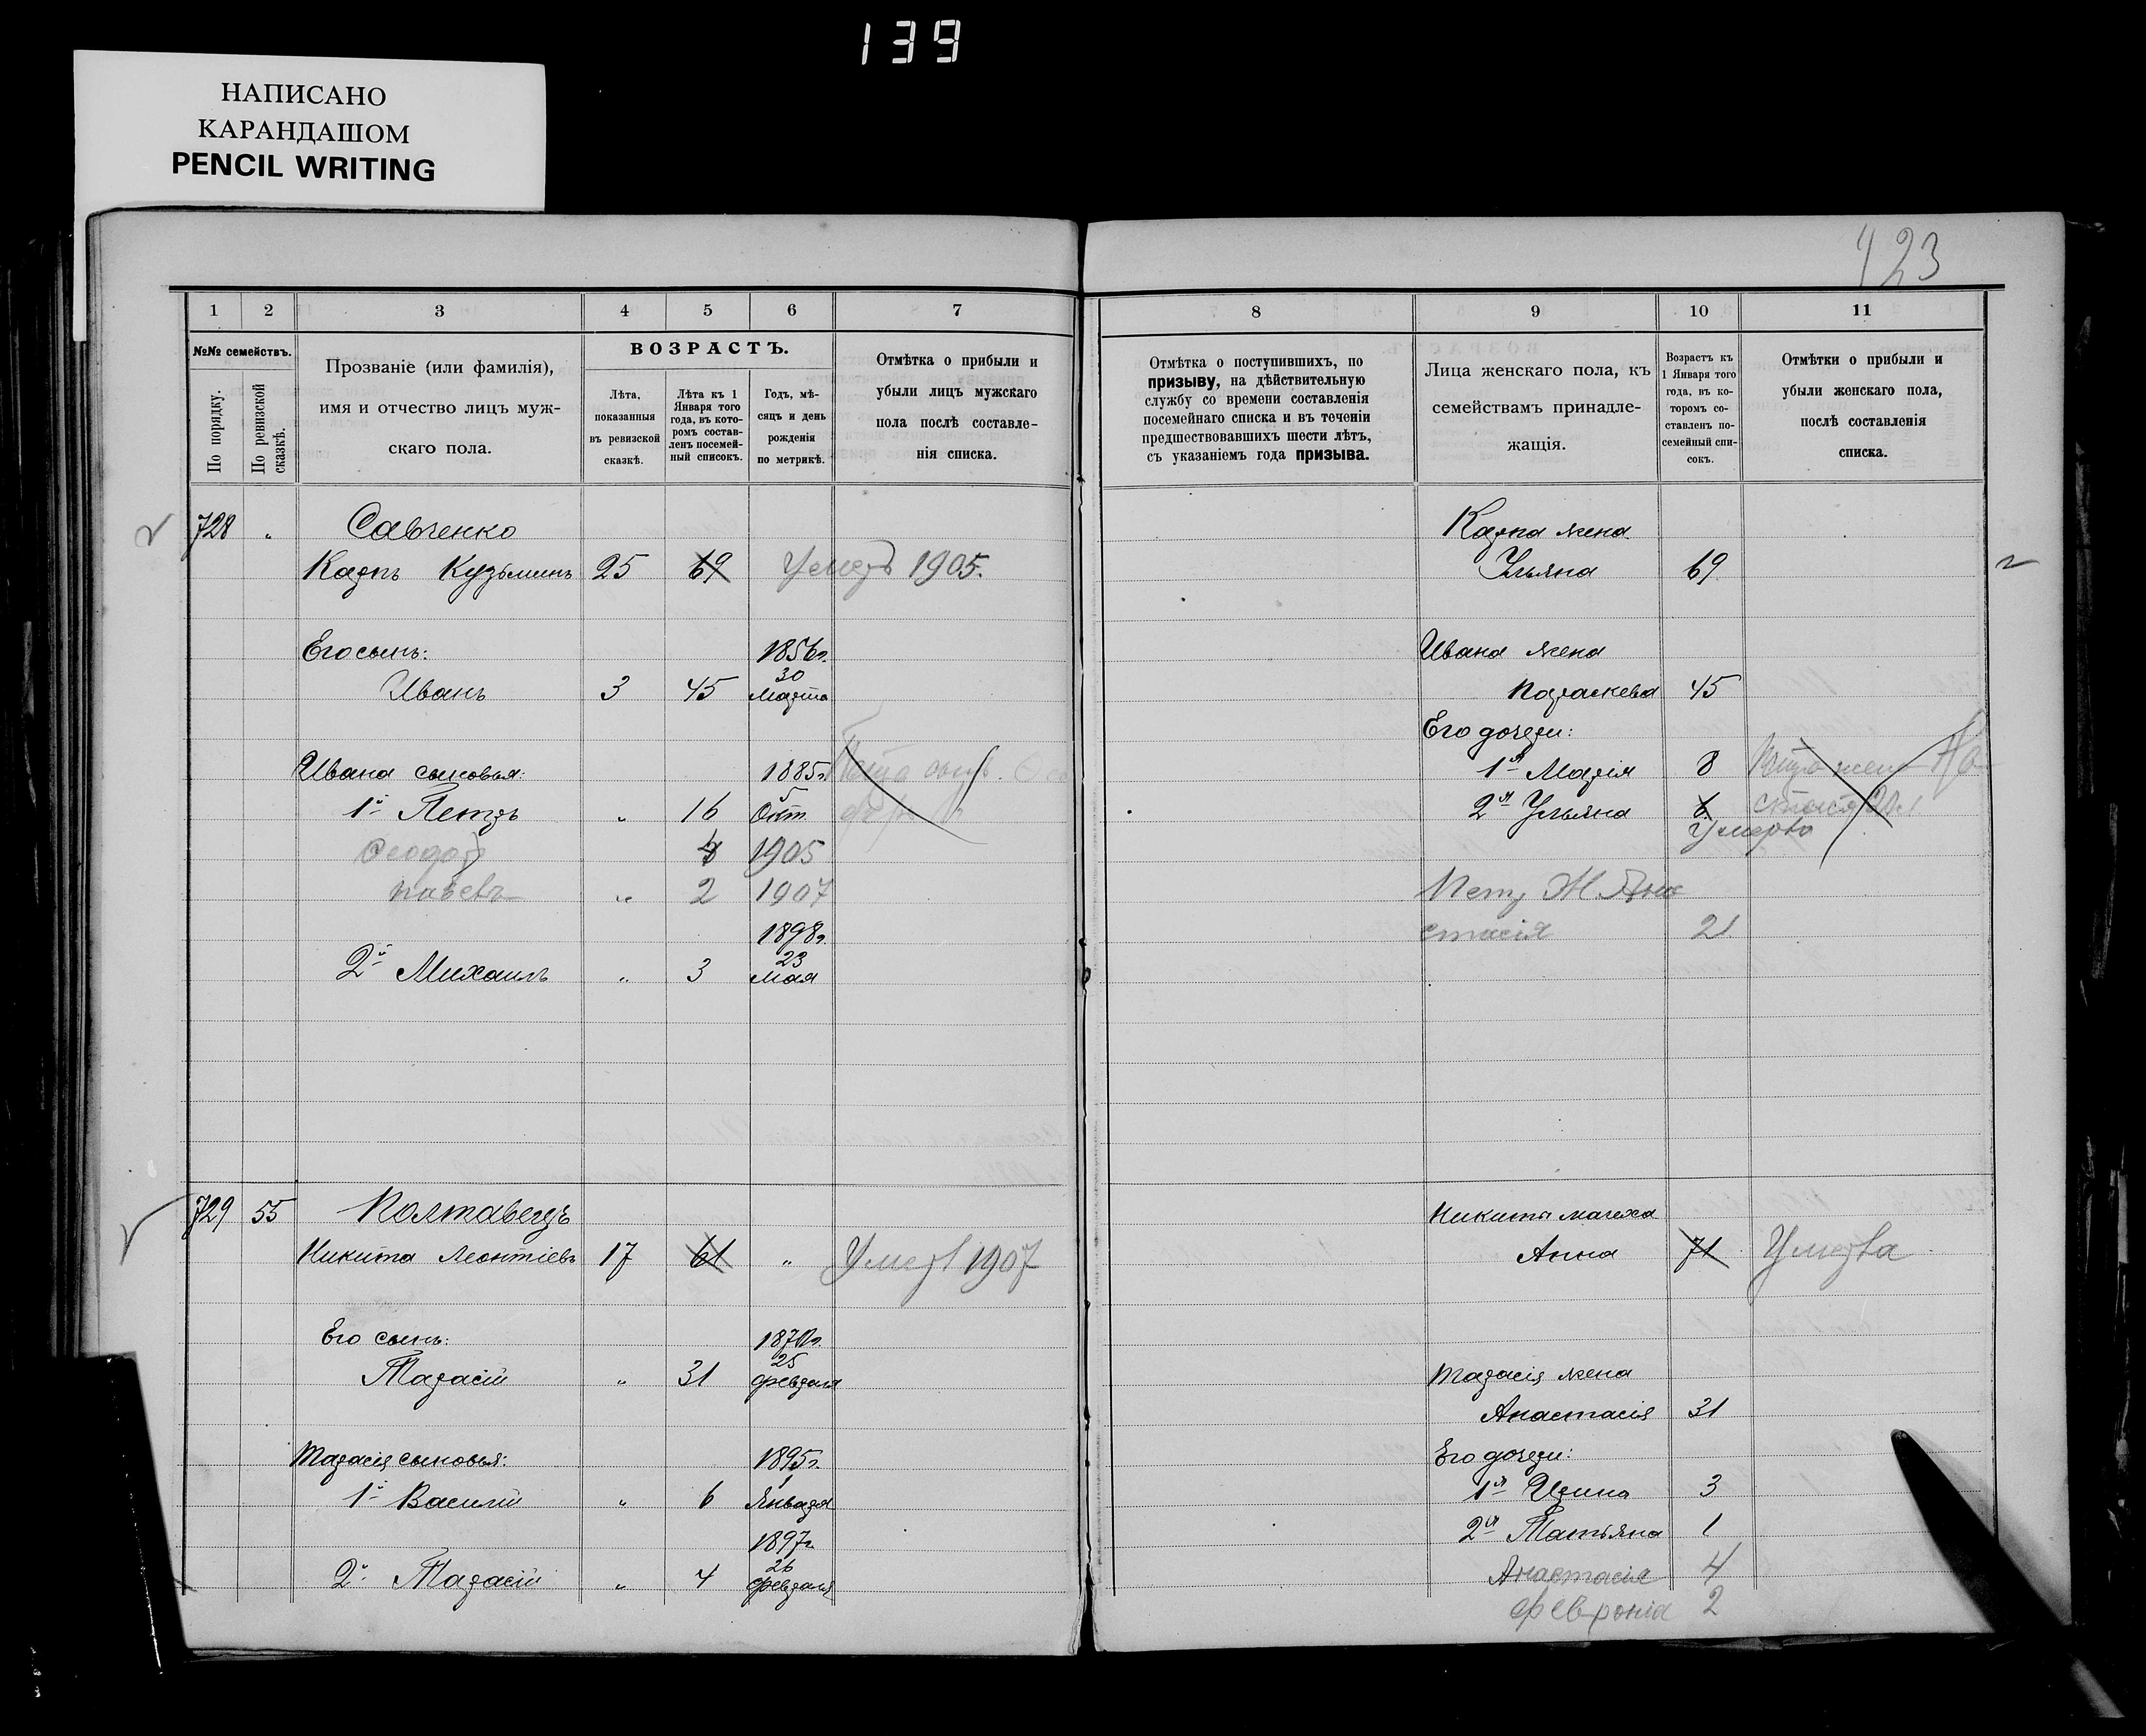 139
НАПИСАНО
КАРАНДАШОМ
PENCIL WRITING
423
1 2 3 4 5 6 7
№№ семействъ.
По порядку.
По ревизской сказкѣ.
Прозваніе (или фамилія),
имя и отчество лицъ муж-
скаго пола.
ВОЗРАСТЪ.
Лѣта,
показанныя
въ ревизской
сказкѣ.
Лѣта къ 1
Января того
года, въ кото-
ромъ состав-
ленъ посемей-
ный списокъ.
Годъ, мѣ-
сяцъ и день
рожденія
по метрикѣ.
Отмѣтка о прибыли и
убыли лицъ мужскаго
пола послѣ составле-
нія списка.
728 " Савченко
Карпъ Кузьминъ 25 69 Умеръ 1905.
Его сынъ: 1856г.
30
Иванъ 3 45 Марта
Ивана сыновья: 1885г.
5
1й Петръ " 16 Окт.
Феодор 4 1905
" 2 1907
1898г.
23
2й Михаилъ " 3 Мая
729 55 Полтавецъ
Никита Леонтіевъ 17 61 " Умер 1907
Его сынъ: 1870г.
25
Тарасій " 31 февраля
Тарасія сыновья: 1895г.
1
1й Василій " 6 Января
1897г.
26
2й Тарасій " 4 февраля
8 9 10 11
Отмѣтка о поступившихъ, по
призыву, на дѣйствительную
службу со времени составленія
посемейнаго списка и въ теченіи
предшествовавшихъ шести лѣтъ,
съ указаніемъ года призыва.
Лица женскаго пола, къ
семействамъ принадле-
жащія.
Возрастъ къ
1 Января того
года, въ ко-
торомъ со-
ставленъ по-
семейный спи-
сокъ.
Отмѣтки о прибыли и
убыли женскаго пола,
послѣ составленія
списка.
Карпа жена
Ульяна 69
Ивана жена
Параскева 45
Его дочери:
1я Марія 8
2я Ульяна 6
Умерла
Петр Ж. Ана
стасія 21
Никиты мачеха
Анна 71 Умерла
Тарасія жена
Анастасія 31
Его дочери:
1я Ирина 3
2я Татьяна 1
Анастасія 4
Феврония 2